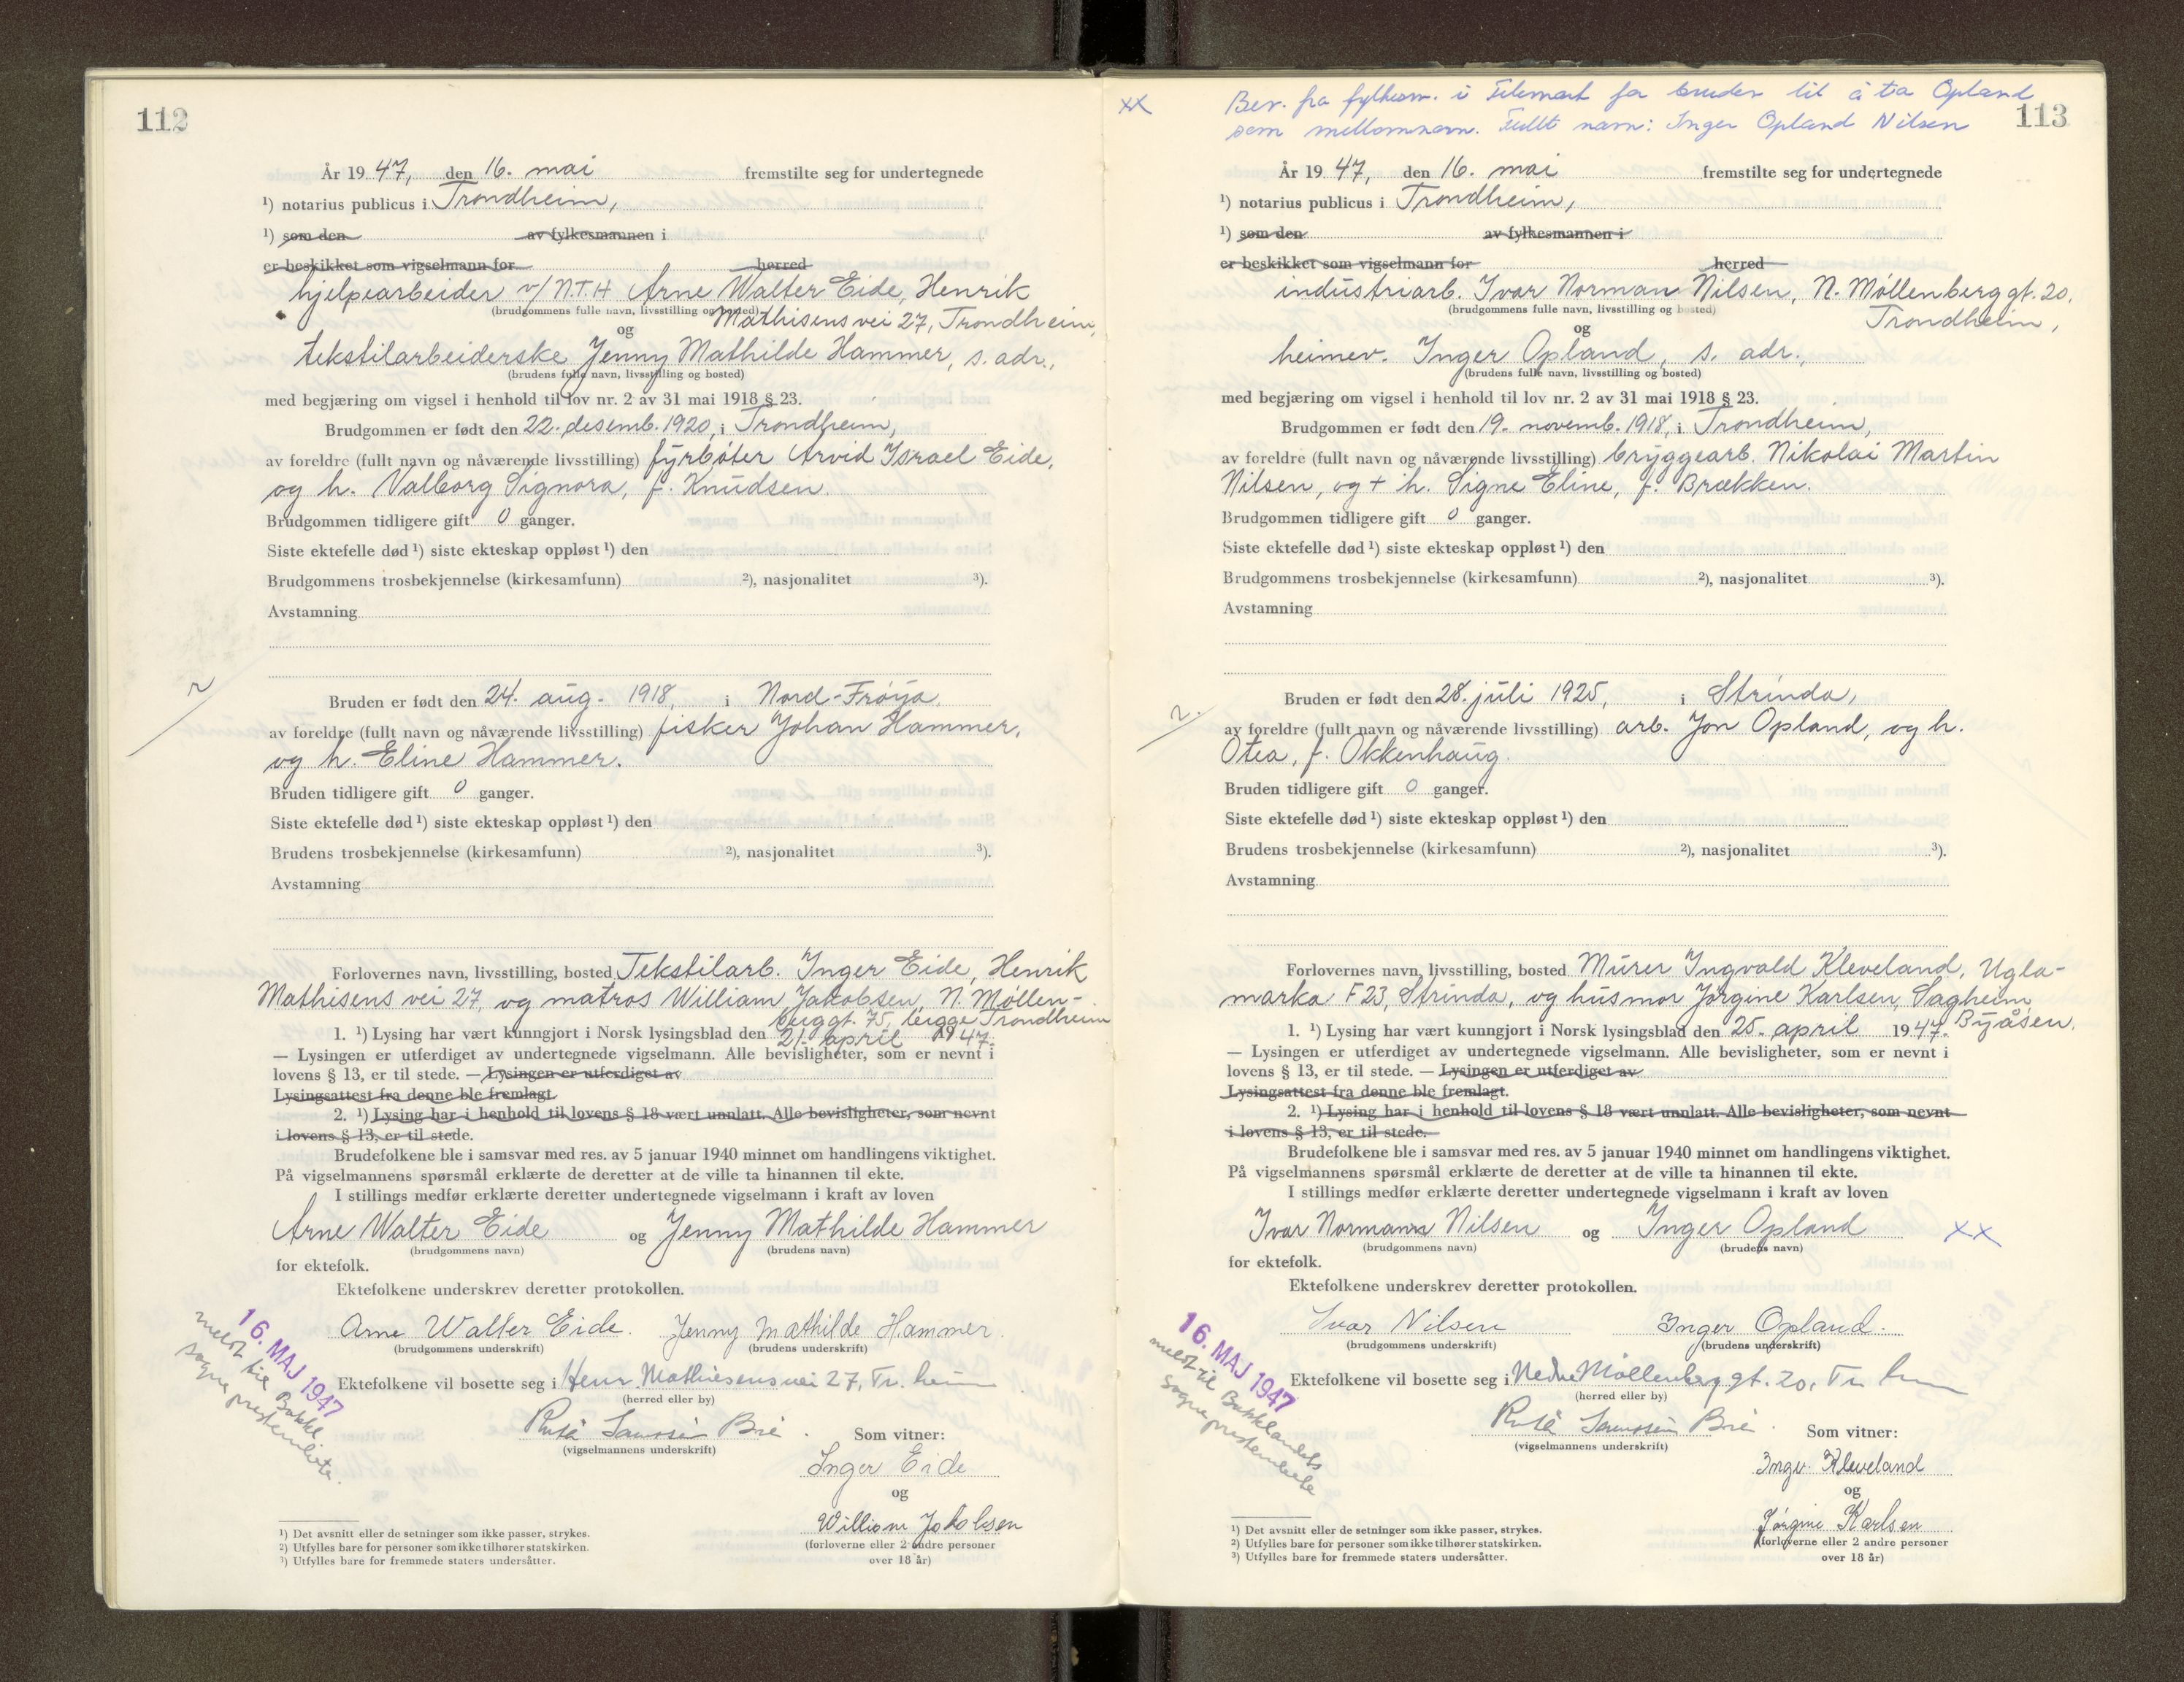 112
År 1947, den 16. mai fremstilte seg for undertegnede
¹) notarius publicus i Trondheim,
¹) som den av fylkesmannen i
er beskikket som vigselmann for herred
hjelpearbeider v/ N.T.H Arne Walter Eide, Henrik
(brudgommens fulle navn, livsstilling og bosted)
Mathisens vei 27, Trondheim,
og
tekstilarbeiderske Jenny Mathilde Hammer, s. adr.,
(brudens fulle navn, livsstilling og bosted)
med begjæring om vigsel i henhold til lov nr. 2 av 31 mai 1918 § 23.
Brudgommen er født den 22. desemb. 1920, i Trondheim,
av foreldre (fullt navn og nåværende livsstilling) fyrbøter Arvid Israel Eide,
og h. Valborg Signora, f. Knudsen.
Brudgommen tidligere gift 0 ganger.
Siste ektefelle død ¹) siste ekteskap oppløst ¹) den
Brudgommens trosbekjennelse (kirkesamfunn) ²), nasjonalitet ³).
Avstamning
Bruden er født den 24. aug. 1918, i Nord-Frøya.
av foreldre (fullt navn og nåværende livsstilling) fisker Johan Hammer,
og h. Eline Hammer.
Bruden tidligere gift 0 ganger.
Siste ektefelle død ¹) siste ekteskap oppløst ¹) den
Brudens trosbekjennelse (kirkesamfunn) ²), nasjonalitet ³).
Avstamning
Forlovernes navn, livsstilling, bosted Tekstilarb. Inger Eide, Henrik
Mathisens vei 27, og matros William Jakobsen, N. Møllen-
berggt. 75, begge Trondheim
1. ¹) Lysing har vært kunngjort i Norsk lysingsblad den 21. april 1947.
— Lysingen er utferdiget av undertegnede vigselmann. Alle bevisligheter, som er nevnt i
lovens § 13, er til stede. — Lysingen er utferdiget av
Lysingsattest fra denne ble fremlagt.
2. ¹) Lysing har i henhold til lovens § 18 vært unnlatt. Alle bevisligheter, som nevnt
i lovens § 13, er til stede.
Brudefolkene ble i samsvar med res. av 5 januar 1940 minnet om handlingens viktighet.
På vigselmannens spørsmål erklærte de deretter at de ville ta hinannen til ekte.
I stillings medfør erklærte deretter undertegnede vigselmann i kraft av loven
Arne Walter Eide og Jenny Mathilde Hammer
(brudgommens navn) (brudens navn)
for ektefolk.
Ektefolkene underskrev deretter protokollen.
Arne Walter Eide. Jenny Mathilde Hammer.
(brudgommens underskrift) (brudens underskrift)
16. MAJ 1947
meldt til Bakkl.
sogneprestembete.
Ektefolkene vil bosette seg i Henr. Mathiesens vei 27, Tr. heim
(herred eller by)
(vigselmannens underskrift)
Som vitner:
Inger Eide
og
William Jakobsen
(forloverne eller 2 andre personer
over 18 år)
¹) Det avsnitt eller de setninger som ikke passer, strykes.
²) Utfylles bare for personer som ikke tilhører statskirken.
³) Utfylles bare for fremmede staters undersåtter.
xx Bev. fra fylkesm. i Telemark for bruden til å ta Opland
som mellomnavn. Fullt navn: Inger Opland Nilsen
113
År 1947, den 16. mai fremstilte seg for undertegnede
¹) notarius publicus i Trondheim,
¹) som den av fylkesmannen i
er beskikket som vigselmann for herred
industriarb. Ivar Norman Nilsen, N. Møllenberggt. 20,
(brudgommens fulle navn, livsstilling og bosted)
Trondheim,
og
heimev. Inger Opland, s. adr.,
(brudens fulle navn, livsstilling og bosted)
med begjæring om vigsel i henhold til lov nr. 2 av 31 mai 1918 § 23.
Brudgommen er født den 19. novemb. 1918, i Trondheim,
av foreldre (fullt navn og nåværende livsstilling) bryggearb. Nikolai Martin
Nilsen, og + h. Signe Eline, f. Brækken.
Brudgommen tidligere gift 0 ganger.
Siste ektefelle død ¹) siste ekteskap oppløst ¹) den
Brudgommens trosbekjennelse (kirkesamfunn) ²), nasjonalitet ³).
Avstamning
Bruden er født den 28. juli 1925, i Strinda,
av foreldre (fullt navn og nåværende livsstilling) arb. Jon Opland, og h.
Otea, f. Okkenhaug.
Bruden tidligere gift 0 ganger.
Siste ektefelle død ¹) siste ekteskap oppløst ¹) den
Brudens trosbekjennelse (kirkesamfunn) ²), nasjonalitet ³).
Avstamning
Forlovernes navn, livsstilling, bosted Murer Ingvald Kleveland, Ugla-
marka F 23, Strinda, og husmor Jørgine Karlsen, Sagheim,
Byåsen.
1. ¹) Lysing har vært kunngjort i Norsk lysingsblad den 25. april 1947.
— Lysingen er utferdiget av undertegnede vigselmann. Alle bevisligheter, som er nevnt i
lovens § 13, er til stede. — Lysingen er utferdiget av
Lysingsattest fra denne ble fremlagt.
2. ¹) Lysing har i henhold til lovens § 18 vært unnlatt. Alle bevisligheter, som nevnt
i lovens § 13, er til stede.
Brudefolkene ble i samsvar med res. av 5 januar 1940 minnet om handlingens viktighet.
På vigselmannens spørsmål erklærte de deretter at de ville ta hinannen til ekte.
I stillings medfør erklærte deretter undertegnede vigselmann i kraft av loven
Ivar Normann Nilsen og Inger Opland xx
(brudgommens navn) (brudens navn)
for ektefolk.
Ektefolkene underskrev deretter protokollen.
Ivar Nilsen Inger Opland.
(brudgommens underskrift) (brudens underskrift)
16. MAJ 1947
meldt til Bakklandets
sogneprestembete
Ektefolkene vil bosette seg i Nedre Møllenberg gt. 20, Tr. heim
(herred eller by)
(vigselmannens underskrift)
Som vitner:
Ingv. Kleveland
og
Jørgine Karlsen
(forloverne eller 2 andre personer
over 18 år)
¹) Det avsnitt eller de setninger som ikke passer, strykes.
²) Utfylles bare for personer som ikke tilhører statskirken.
³) Utfylles bare for fremmede staters undersåtter.